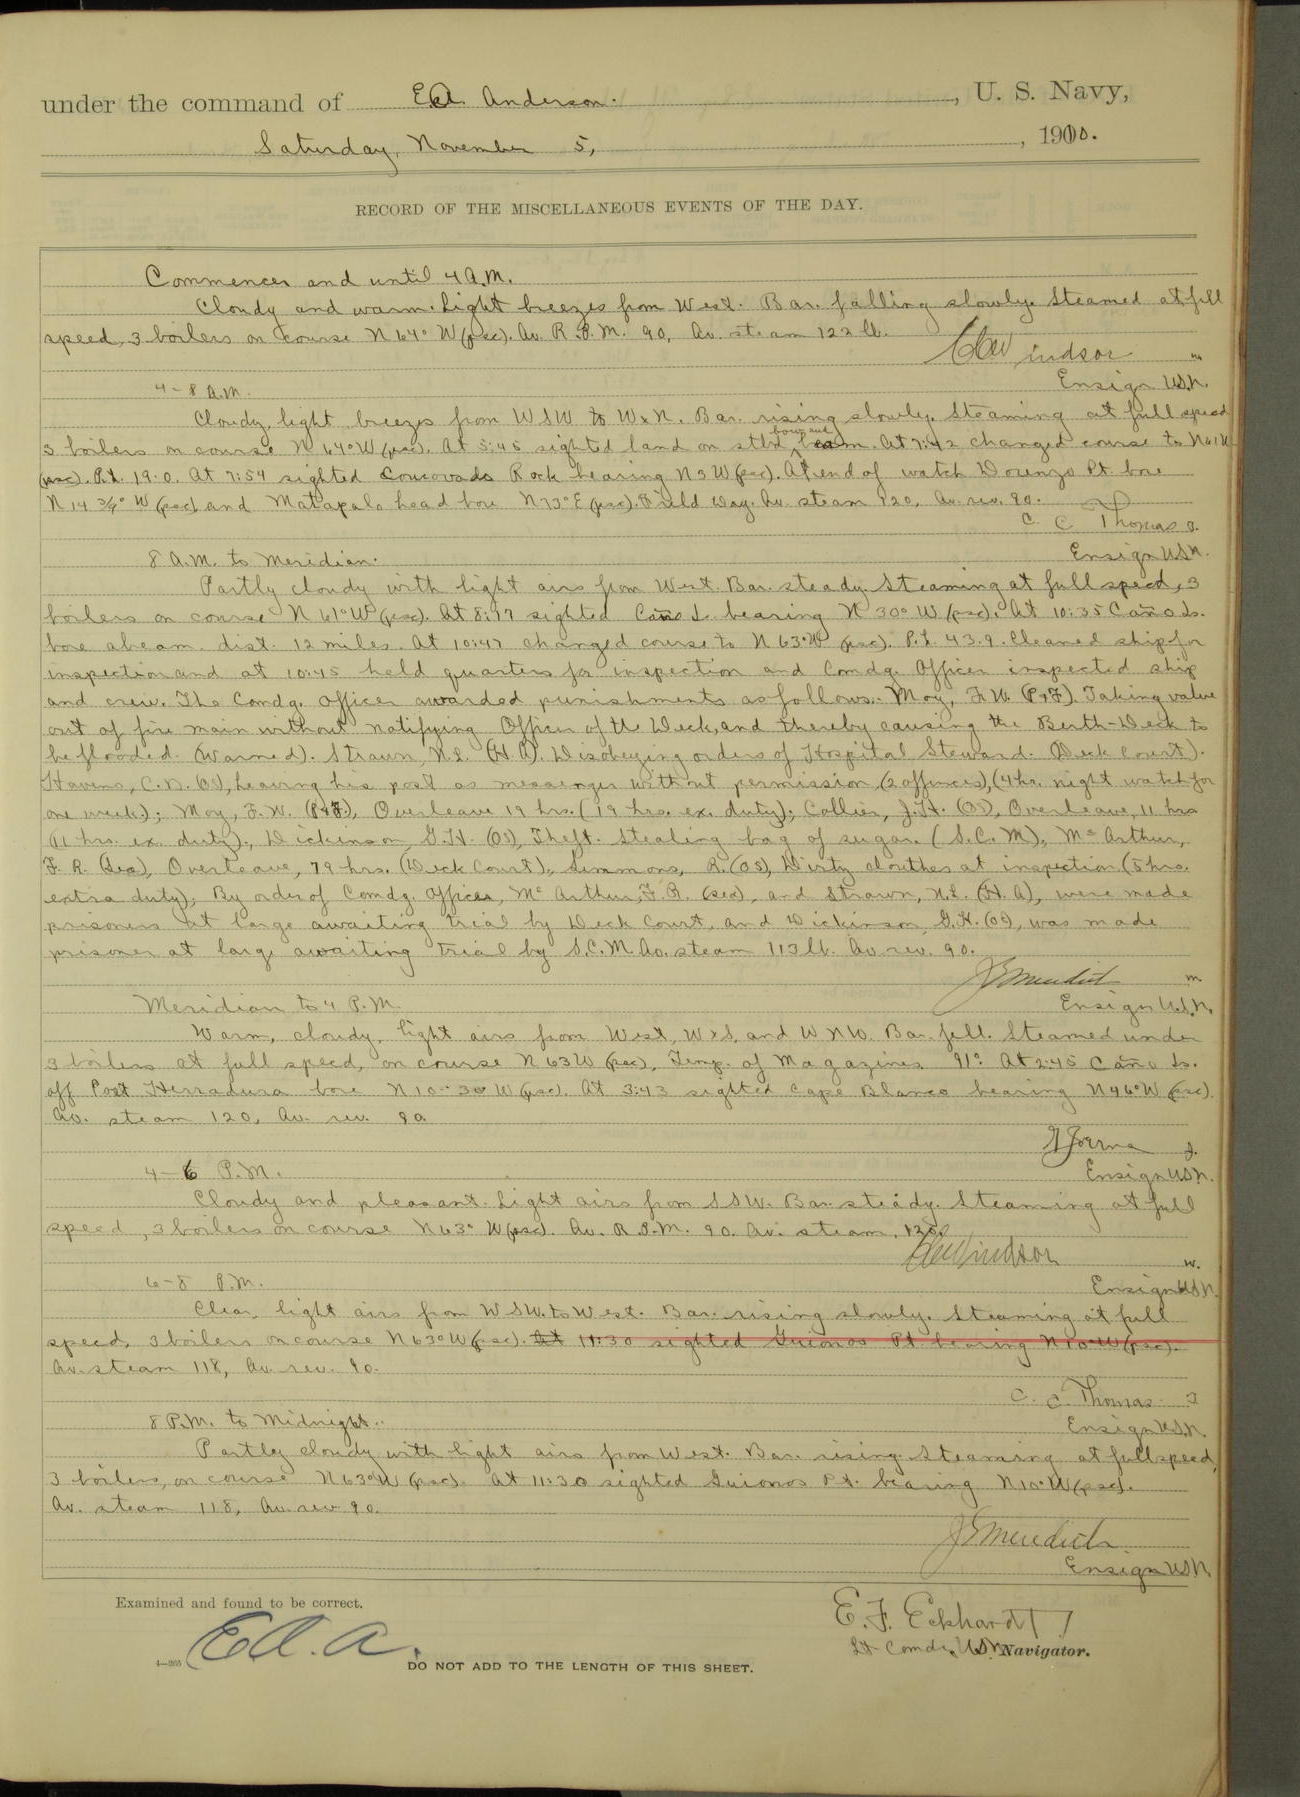 under the command of E.A. Anderson. , U. S. Navy,
Saturday, November 5, , 1910.
RECORD OF THE MISCELLANEOUS EVENTS OF THE DAY.
Commences and until 4 A.M.
Cloudy and warm. Light breezes from West. Bar. falling slowly. Steamed at full
speed, 3 boilers on course N 64° W (psc). Av. R.P.M. 90, Av. steam 122 lb.
Windsor
Ensign U.S.N.
4-8 A.M.
Cloudy, light breezes from WSW to WxN. Bar. rising slowly. Steaming at full speed
3 boilers on course N 64° W (psc). At 5:45 sighted land on stbd bow and beam. At 7:42 changed course to N 61 W
(psc). P.L. 19.0. At 7:54 sighted Concovado Rock bearing N 3 W (psc). At end of watch Lorenzo Pt. bore
N 14 3/4° W (psc) and Matapalo head bore N 73° E (psc). Field Day. Av. steam 120, Av. rev. 90.
C. C. Thomas
Ensign U.S.N.
8 A.M. to Meridian.
Partly cloudy with light airs from West. Bar. steady. Steaming at full speed, 3
boilers on course N 61° W (psc). At 8:17 sighted Caño I. bearing N 30° W (psc). At 10:35 Caño Is.
bore abeam. dist. 12 miles. At 10:47 changed course to N 63° W (psc). P.L. 43.9. Cleaned ship for
inspection and at 10:45 held quarters for inspection and Comdg. Officer inspected ship
and crew. The Comdg. Officer awarded punishments as follows:- Moy, F.W. (P&F). Taking valve
out of fire main without notifying Officer of the Deck, and thereby causing the Berth-Deck to
be flooded. (Warned). Strawn, N.L. (H.A). Disobeying orders of Hospital Steward. (Deck Court).
Havens, C.D. (OS), leaving his post as messenger without permission (2 offences), (4 hr. night watch for
one week); Moy, F.W. (P&F), Overleave 19 hrs. (19 hrs. ex. duty); Collier, J.H. (OS), Overleave, 11 hrs
(11 hrs. ex. duty); Dickinson, G.H. (OS), Theft. Stealing bag of sugar. (S.C.M), McArthur,
F. R. (Sea), Overleave, 79 hrs. (Deck Court), Simmons, R. (OS), Dirty clouthes at inspection (5 hrs.
extra duty), By order of Comdg. Officer, McArthur, F.R. (sea), and Strawn, N.L. (H.A), were made
prisoners at large awaiting trial by Deck Court, and Dickinson, G.H. (OS), was made
prisoner at large awaiting trial by S.C.M. Av. steam 113 lb. Av. rev. 90.
J Meredith
Ensign U.S.N.
Meridian to 4 P.M.
Warm, cloudy, light airs from West, WxS, and WNW. Bar. fell. Steamed under
3 boilers at full speed, on course N 63 W (psc), Temp. of Magazines 91°. At 2:45 Caño Is.
off Port Herradura bore N 10-30 W (psc). At 3:43 sighted Cape Blanco bearing N 46° W (psc).
Av. steam 120, Av. rev. 90.
Ensign U.S.N.
4-6 P.M.
Cloudy and pleasant. Light airs from SSW. Bar. steady. Steaming at full
speed, 3 boilers on course N 63° W (psc). Av. R.P.M. 90. Av. steam, 120.
Windsor
Ensign U.S.N.
6-8 P.M.
Clear, light airs from WSW. to West. Bar. rising slowly. Steaming at full
speed, 3 boilers on course N 63° W (psc). At 11:30 sighted Guionos Pt. bearing N 10° W (psc).
Av. steam 118, Av. rev. 90.
C. C. Thomas
Ensign U.S.N.
8 P.M. to Midnight.
Partly cloudy with light airs from West. Bar. rising. Steaming at full speed,
3 boilers, on course N 63° W (psc). At 11:30 sighted Guionos Pt. bearing N 10° W (psc).
Av. steam 118, Av. rev 90.
J Meredith
Ensign U.S.N.
Examined and found to be correct.
E.A.A.
E. F. Eckhardt
Lt Comdr, U.S.N. Navigator.
DO NOT ADD TO THE LENGTH OF THIS SHEET.